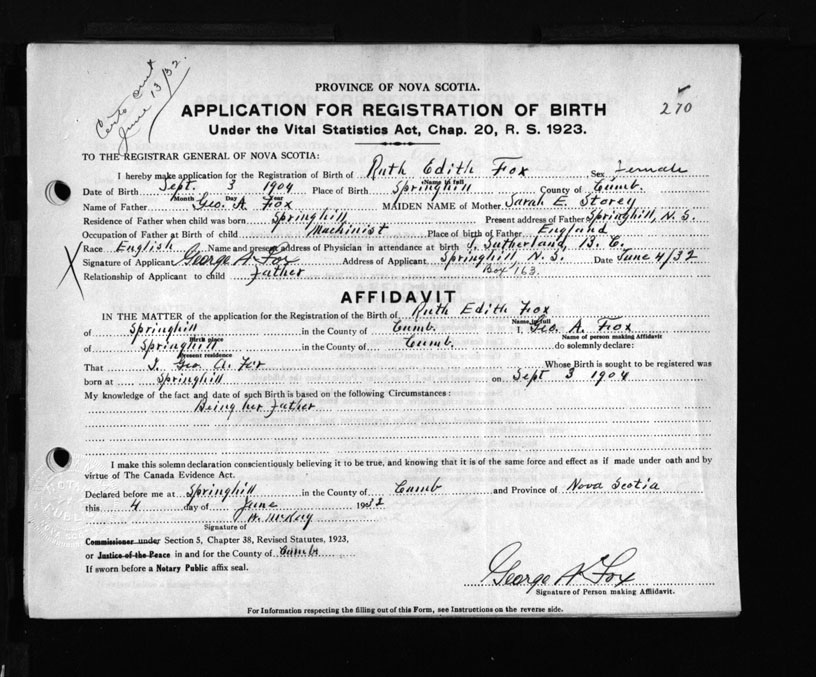 Certo sent
June 13/32.
PROVINCE OF NOVA SCOTIA.
270
APPLICATION FOR REGISTRATION OF BIRTH
Under the Vital Statistics Act, Chap. 20, R. S. 1923.
TO THE REGISTRAR GENERAL OF NOVA SCOTIA:
I hereby make application for the Registration of Birth of Ruth Edith Fox Sex Female
Name in full
Date of Birth Sept. 3 1904 Place of Birth Springhill County of Cumb.
Month Day Year
Name of Father Geo. A Fox MAIDEN NAME of Mother Sarah E. Storey
Residence of Father when child was born Springhill Present address of Father Springhill, N.S.
Occupation of Father at Birth of child Machinist Place of birth of Father England
Race English Name and present address of Physician in attendance at birth J. Sutherland, B. C.
X Signature of Applicant George A Fox Address of Applicant Springhill N.S. Date June 4/32
Relationship of Applicant to child Father Box 163
AFFIDAVIT
IN THE MATTER of the application for the Registration of the Birth of Ruth Edith Fox
Name in full
of Springhill in the County of Cumb. I, Geo. A. Fox
Birth place Name of person making Affidavit
of Springhill in the County of Cumb. do solemnly declare:
Present residence
That I. Geo. A. Fox Whose Birth is sought to be registered was
born at Springhill on Sept 3 1904
My knowledge of the fact and date of such Birth is based on the following Circumstances:
Being her Father
I make this solemn declaration conscientiously believing it to be true, and knowing that it is of the same force and effect as if made under oath and by
virtue of The Canada Evidence Act.
Declared before me at Springhill in the County of Cumb and Province of Nova Scotia
this 4 day of June 1932
W. McKay
Signature of
Commissioner under Section 5, Chapter 38, Revised Statutes, 1923,
or Justice of the Peace in and for the County of Cumb.
If sworn before a Notary Public affix seal.
George A Fox
Signature of Person making Affidavit.
For Information respecting the filling out of this Form, see Instructions on the reverse side.